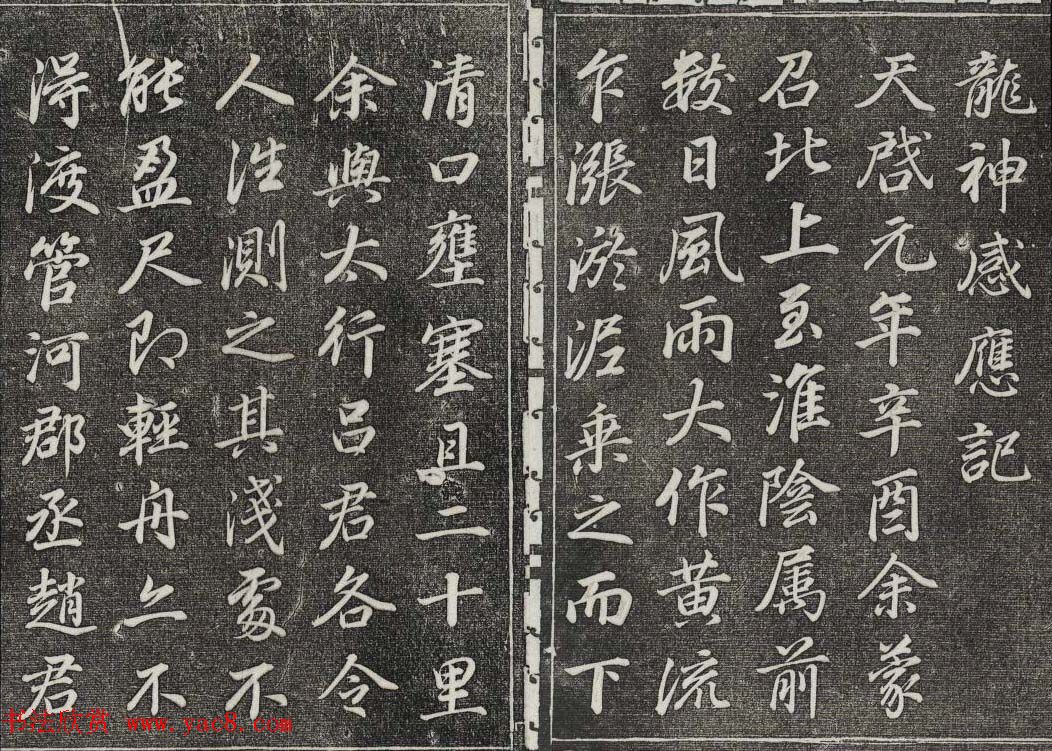 龍神感應記
天啓元年辛酉余蒙
召北上至淮陰属前
数日風雨大作黄流
乍漲淤泥乗之而下
清口壅塞且二十里
余與太行吕君各令
人往測之其淺處不
能盈尺即輕舟亦不
得渡管河郡丞趙君
书法欣赏 www.yac8.com